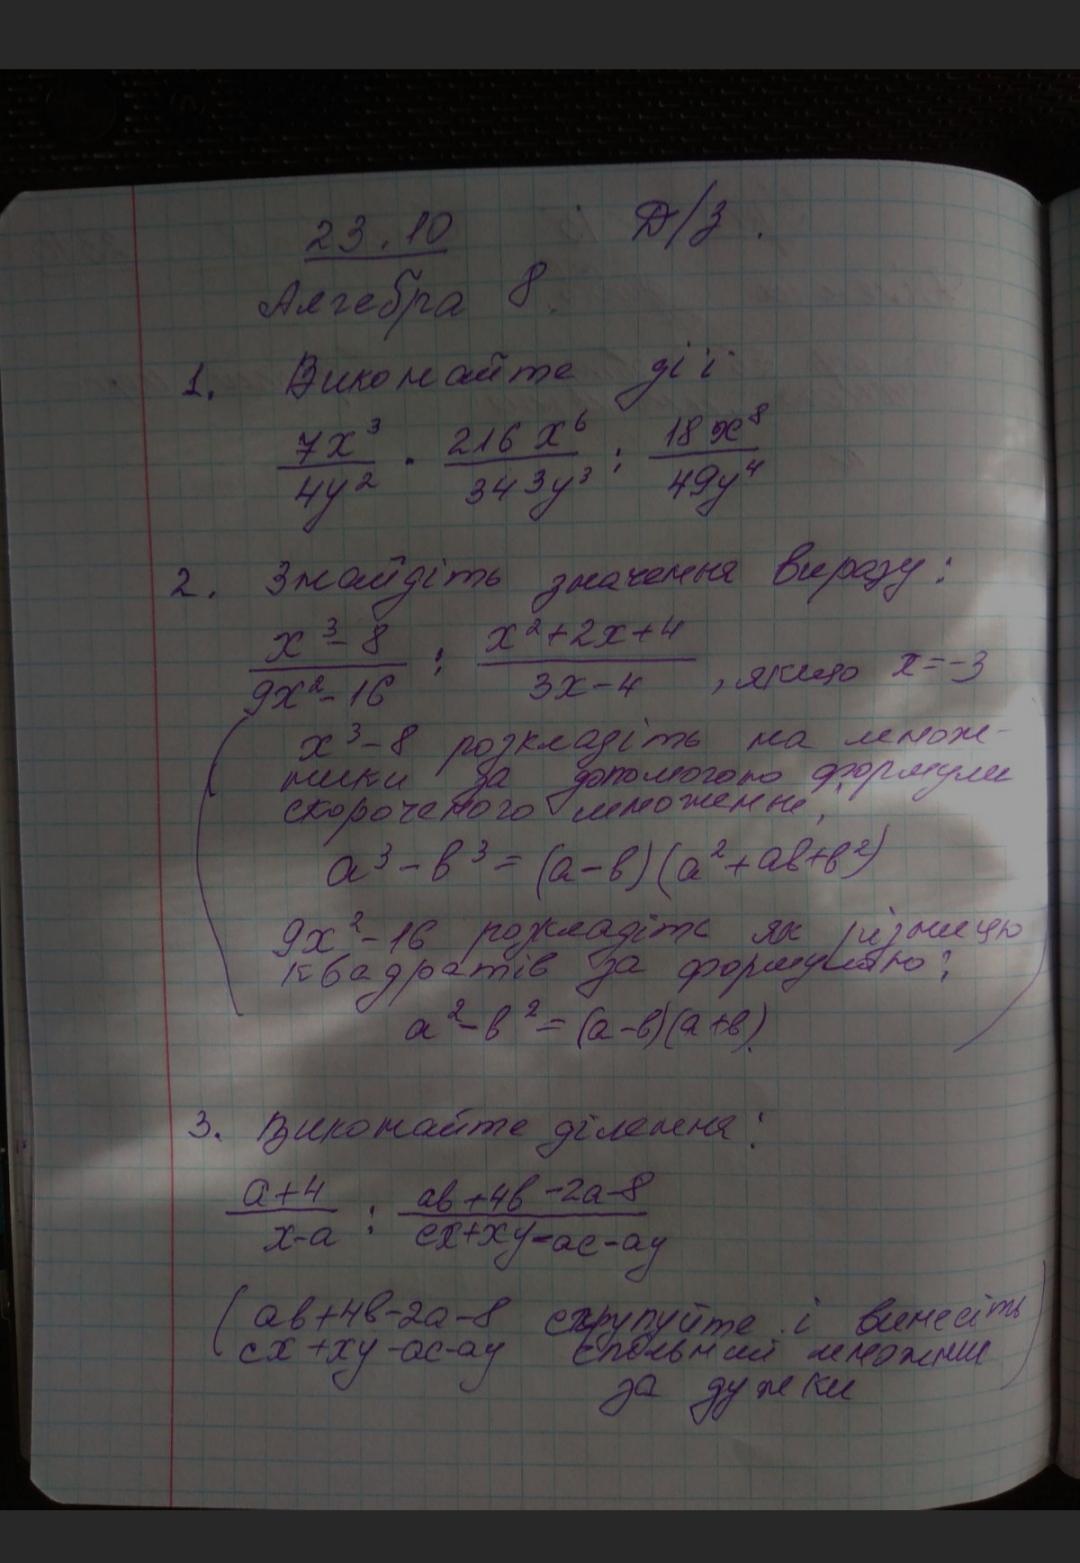 23.10 Д/З.
Алгебра 8.
1. Виконайте дії
7x³/4y² · 216x⁶/343y³ : 18x⁸/49y⁴
2. Знайдіть значення виразу:
x³-8/9x²-16 : x²+2x+4/3x-4, якщо x=-3
(x³-8 розкладіть на множ-
ники за допомогою формули
скороченого множення,
a³-b³=(a-b)(a²+ab+b²)
9x²-16 розкладіть як різницю
квадратів за формулою:
a²-b²=(a-b)(a+b).)
3. Виконайте ділення:
a+4/x-a : ab+4b-2a-8/cx+xy-ac-ay
(ab+4b-2a-8 схрупуйте і винесіть
cx+xy-ac-ay спільний множник
за дужки)